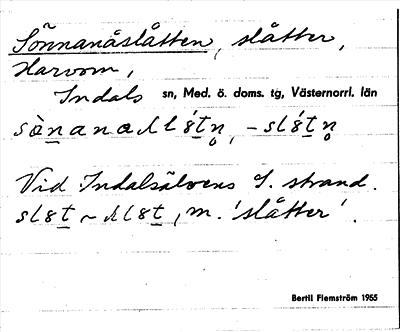 Sönnanåslåtten, slåtter,
Harvom,
Indals sn, Med. ö. doms. tg, Västernorrl. län
Vid Indalsälvens S. strand.
m. 'slåtter'.
Bertil Flemström 1955